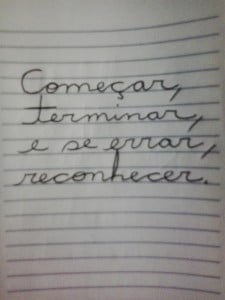 Começar,
terminar,
e se errar,
reconhecer.